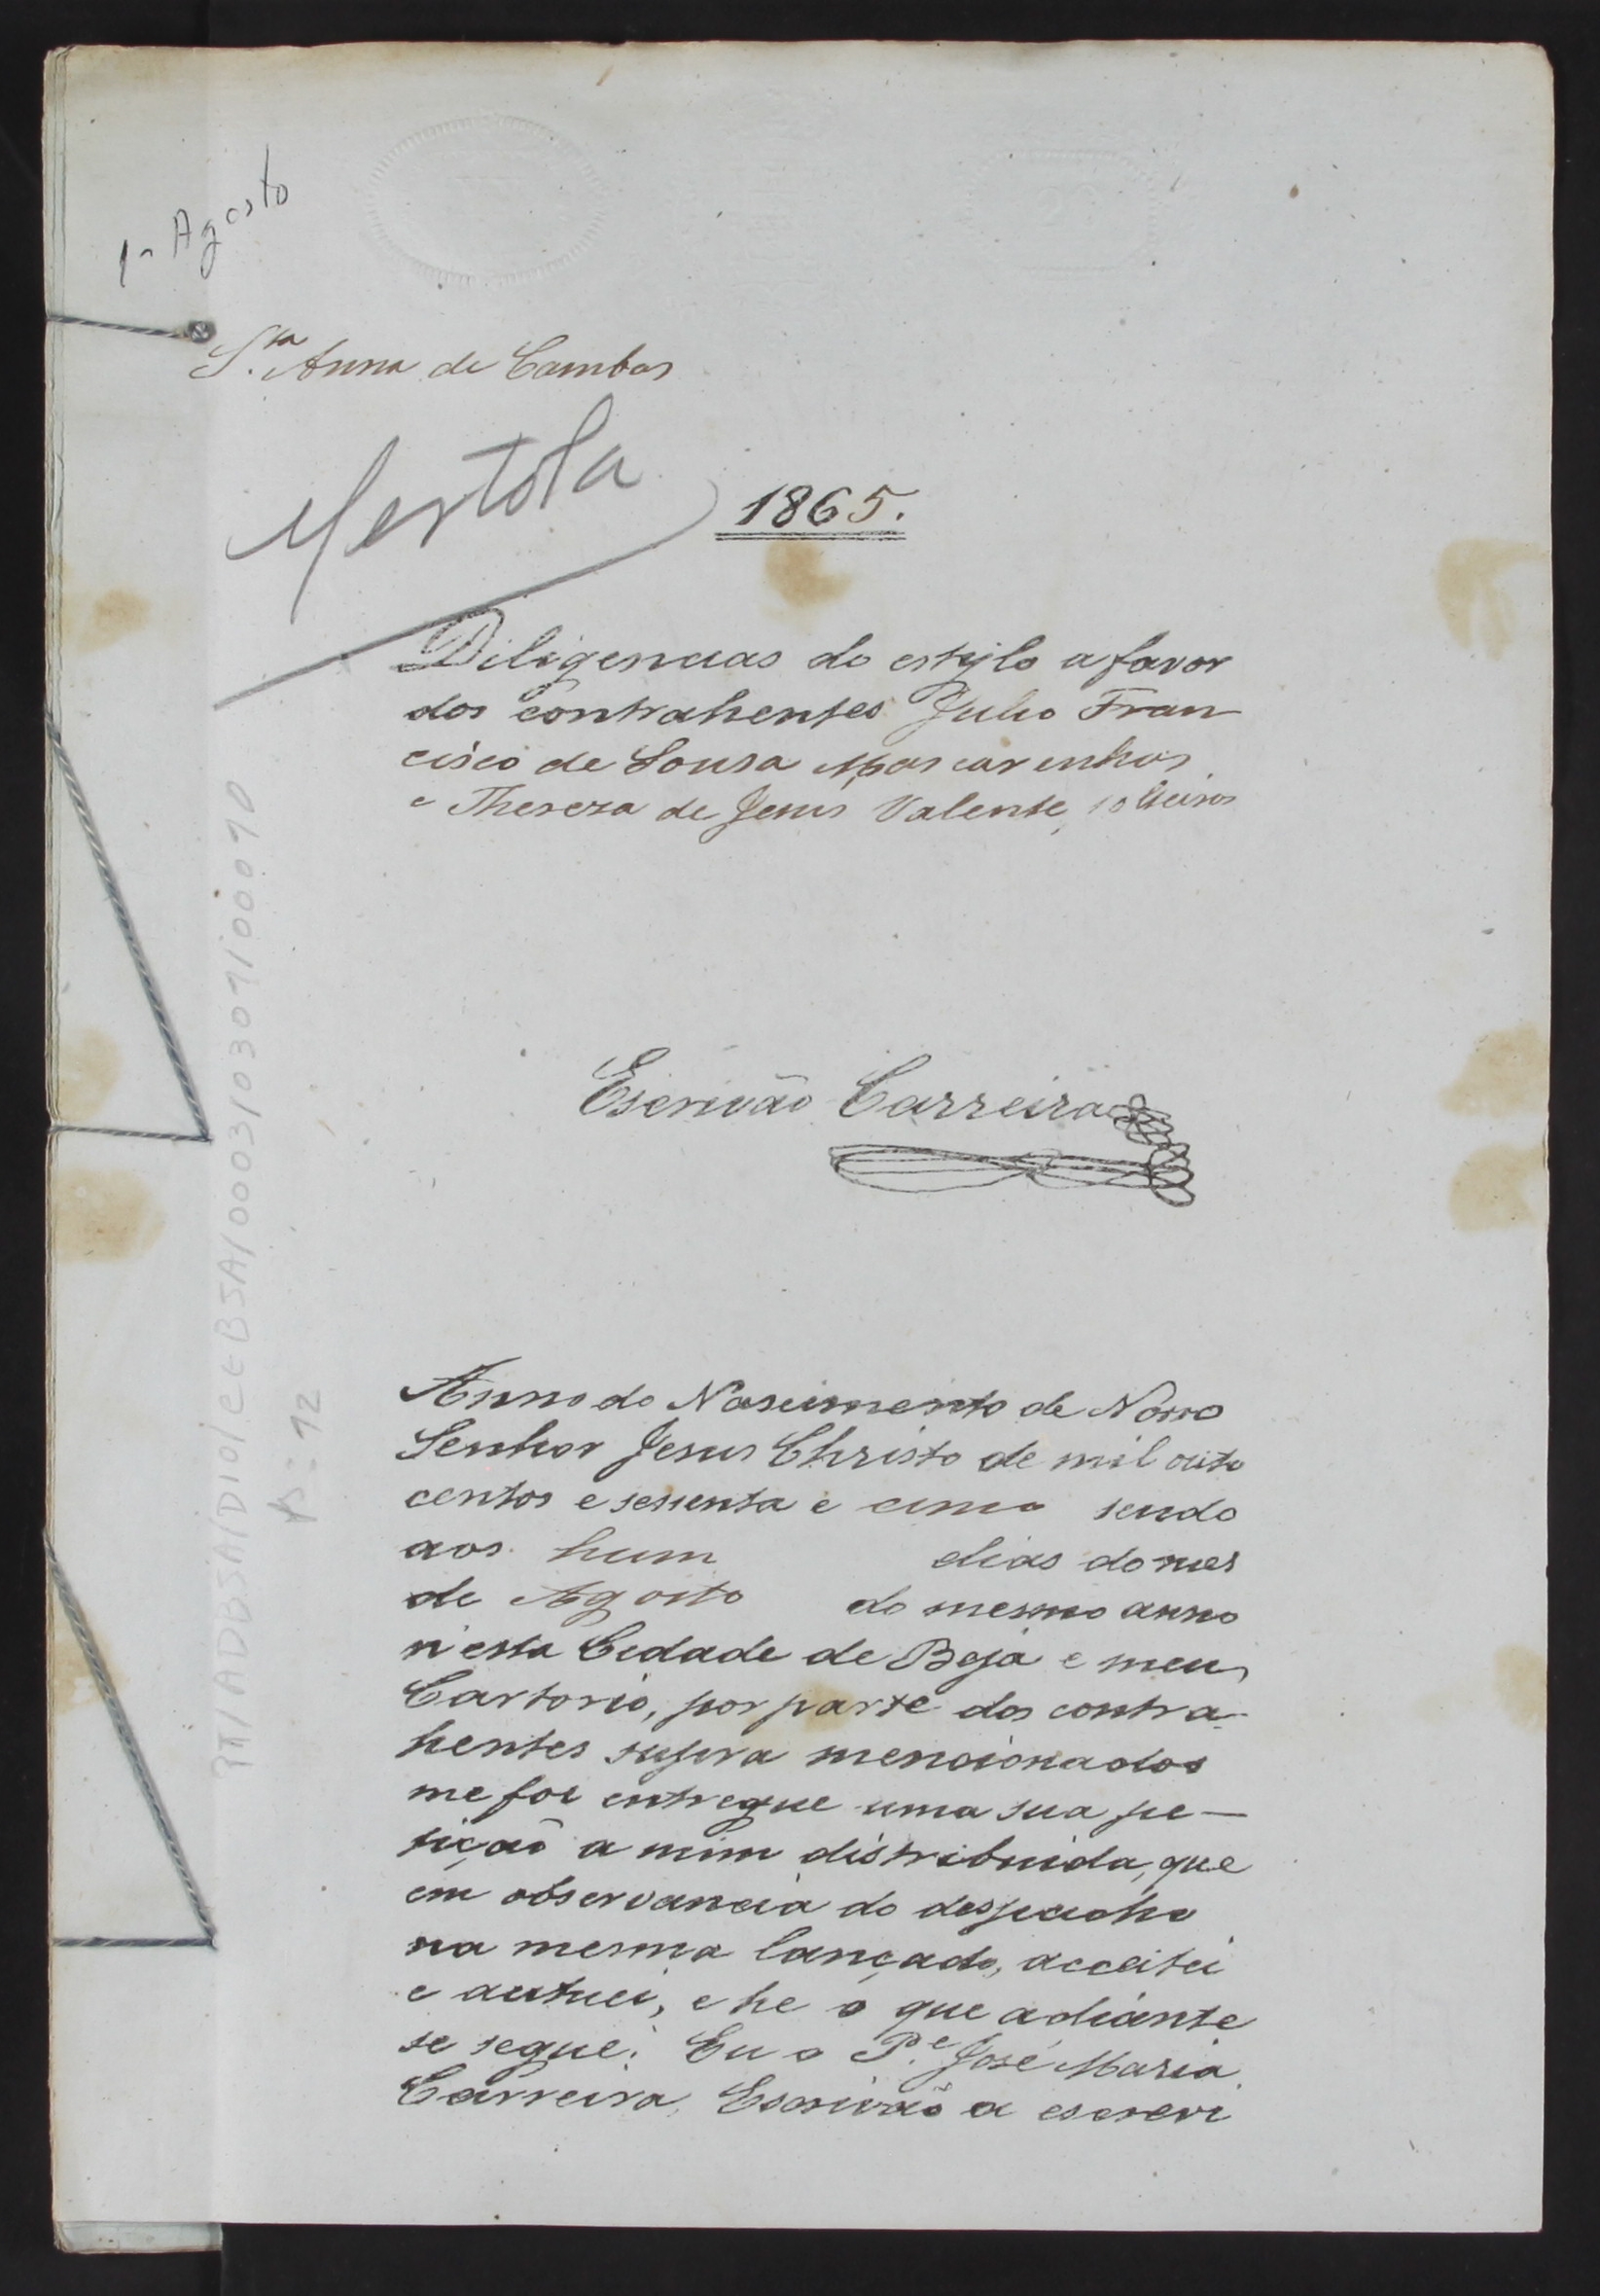 1- Agosto
S.ta Anna de Cambas
Mertola
1865.
Diligencias do estylo a favor
dos contrahentes Julio Fran
cisco de Sousa Mascarenhas
e Thereza de Jesus Valente, solteiros
Escrivão Carreira
Anno do Nascimento de Nosso
Senhor Jesus Christo de mil oito
centos e sessenta e cinco sendo
aos hum dias do mes
de Agosto do mesmo anno
n'esta Cidade de Beja e meu
Cartorio, por parte dos contra-
hentes supra mencionados
me foi entregue uma sua pe-
tição a mim distribuida, que
em observancia do despacho
na mesma lançado, acceitei
e autuei, e he o que adiante
se segue. Eu o P.e José Maria
Carreira, Escrivão a escrevi
PT/ADBJA/DIO/CEBJA/0003/03091/00090
N: 12